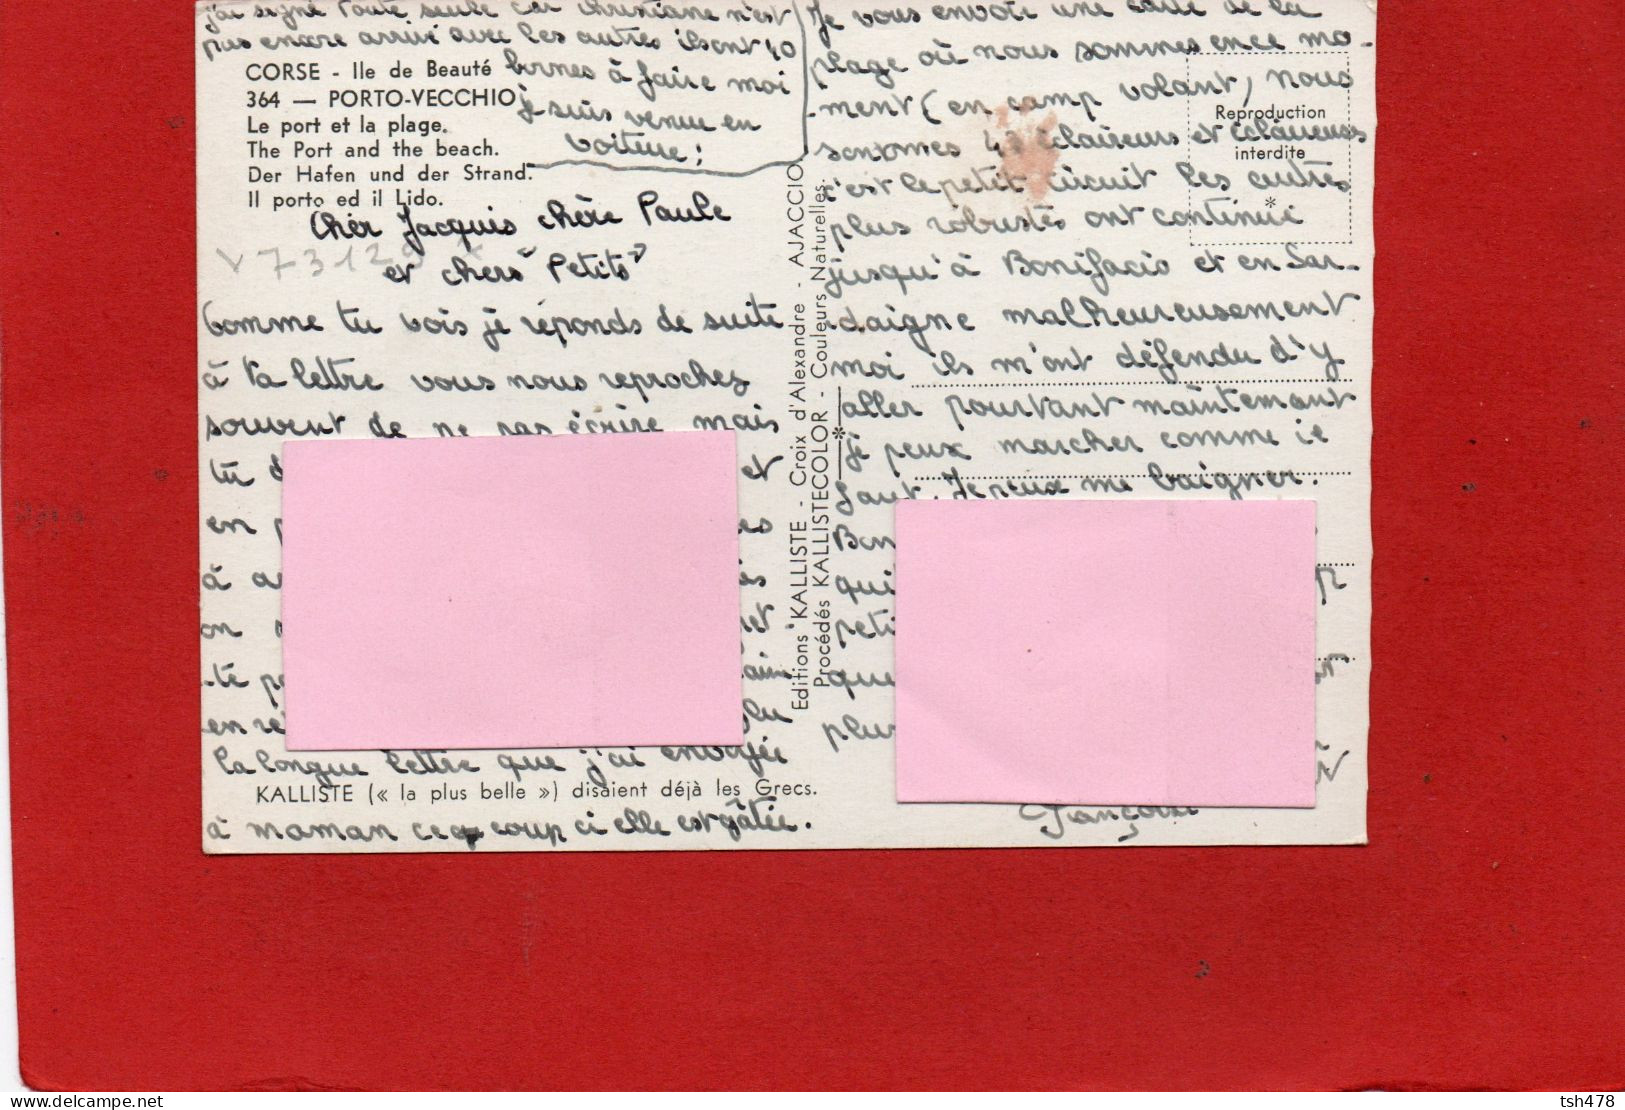 j'ai signé toute seule car Christiane n'est
pas encore arrivé avec les autres ils ont 40
bornes à faire moi
je suis venue en
voiture!
CORSE - Ile de Beauté
364 — PORTO-VECCHIO
Le port et la plage.
The Port and the beach.
Der Hafen und der Strand.
Il porto ed il Lido.
Cher Jacquis chère Paule
et chers "Petits"
V 73129
Comme tu vois je réponds de suite
à ta lettre vous nous reprochez
souvent de ne pas écrire mais
tu et
en p es
à a
on et
te p
en re lu
la longue lettre que j'ai envoyée
KALLISTE (« la plus belle ») disaient déjà les Grecs.
à maman ce coup ci elle est gâtée.
Editions KALLISTE - Croix d'Alexandre - AJACCIO
Procédés KALLISTECOLOR - Couleurs Naturelles.
Je vous envoie une carte de la
plage où nous sommes en ce mo-
ment (en camp volant) nous
Reproduction
interdite
sommes 43 éclaireurs et éclaireuses
c'est le petit circuit les autres
plus robustes ont continué
jusqu'à Bonifacio et en Sar-
daigne malheureusement
moi ils m'ont défendu d'y
aller pourtant maintenant
je peux marcher comme il
faut. Je peux me baigner.
Bon
qui
peti
que
plu
Françoise
tsh478